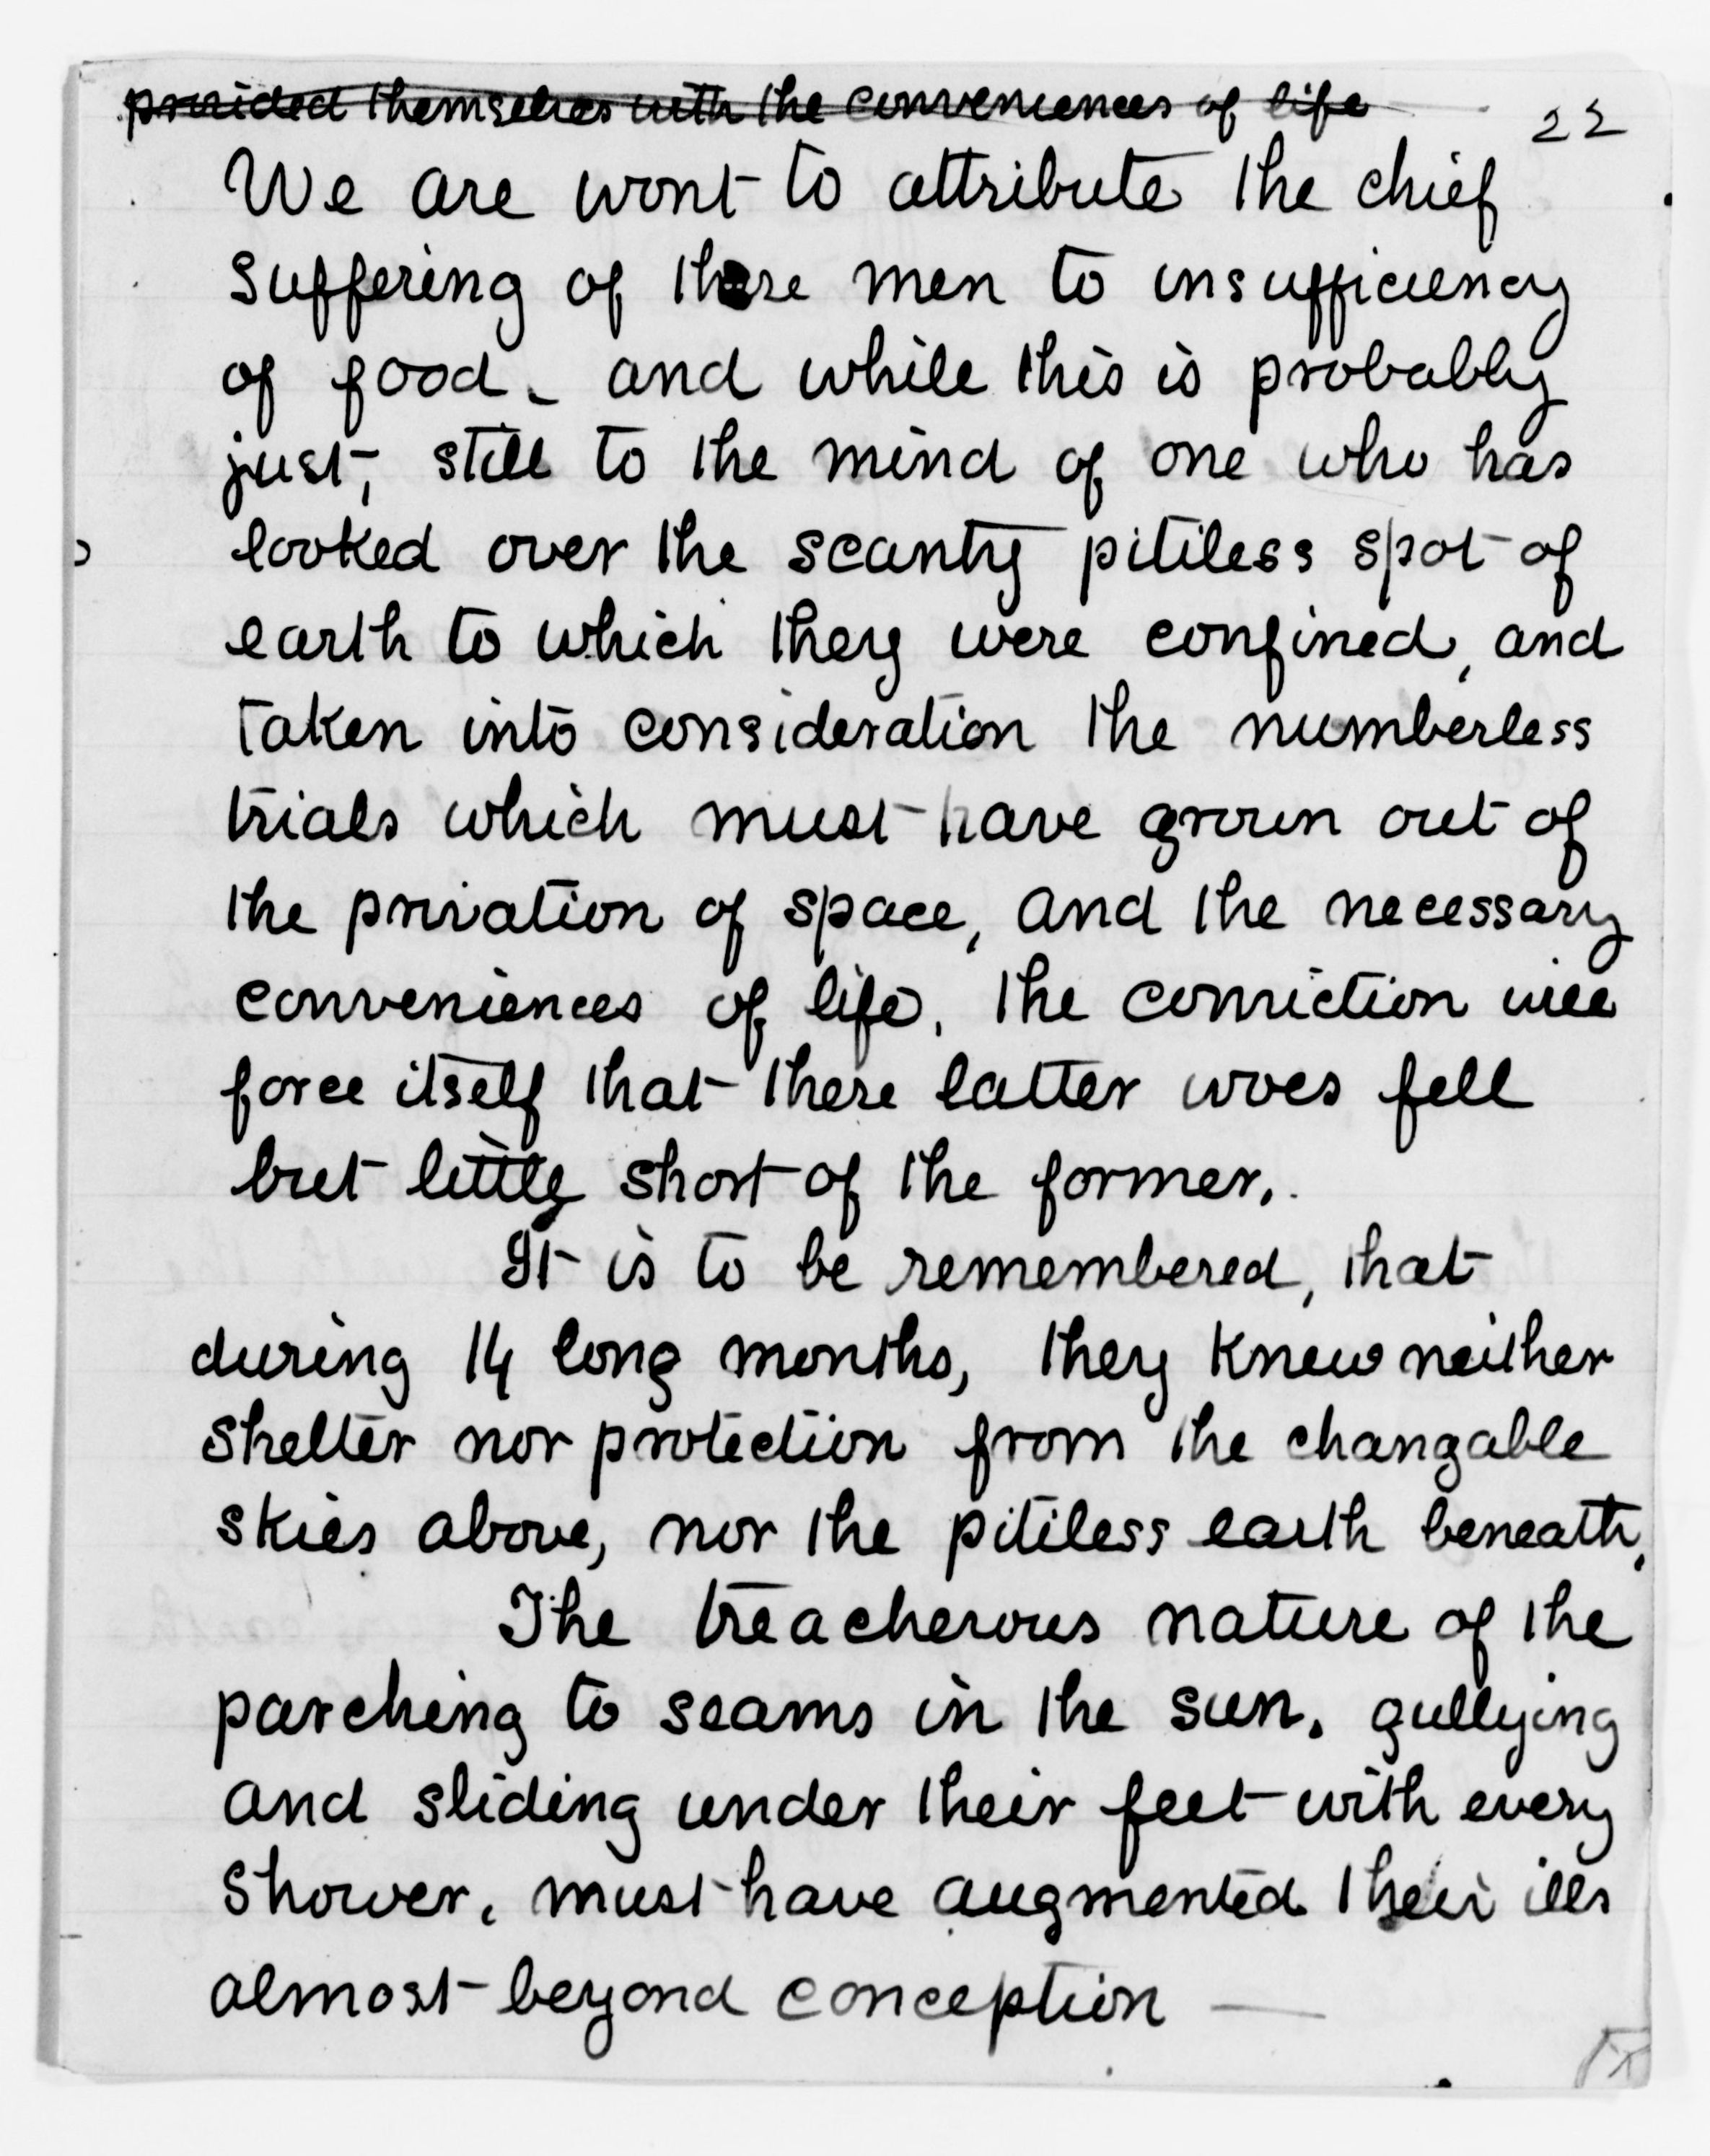 provided themselves with the conveniences of life
22
We are wont to attribute the chief
suffering of these men to insufficiency
of food - and while this is probably
just, still to the mind of one who has
looked over the scanty pitiless spot of
earth to which they were confined, and
taken into consideration the numberless
trials which must have grown out of
the privation of space, and the necessary
conveniences of life, the conviction will
force itself that these latter woes fell
but little short of the former.
It is to be remembered, that
during 14 long months, they knew neither
shelter nor protection from the changable
skies above, nor the pitiless earth beneath.
The treacherous nature of the
parching to seams in the sun, gullying
and sliding under their feet with every
shower, must have augmented their ills
almost beyond conception —